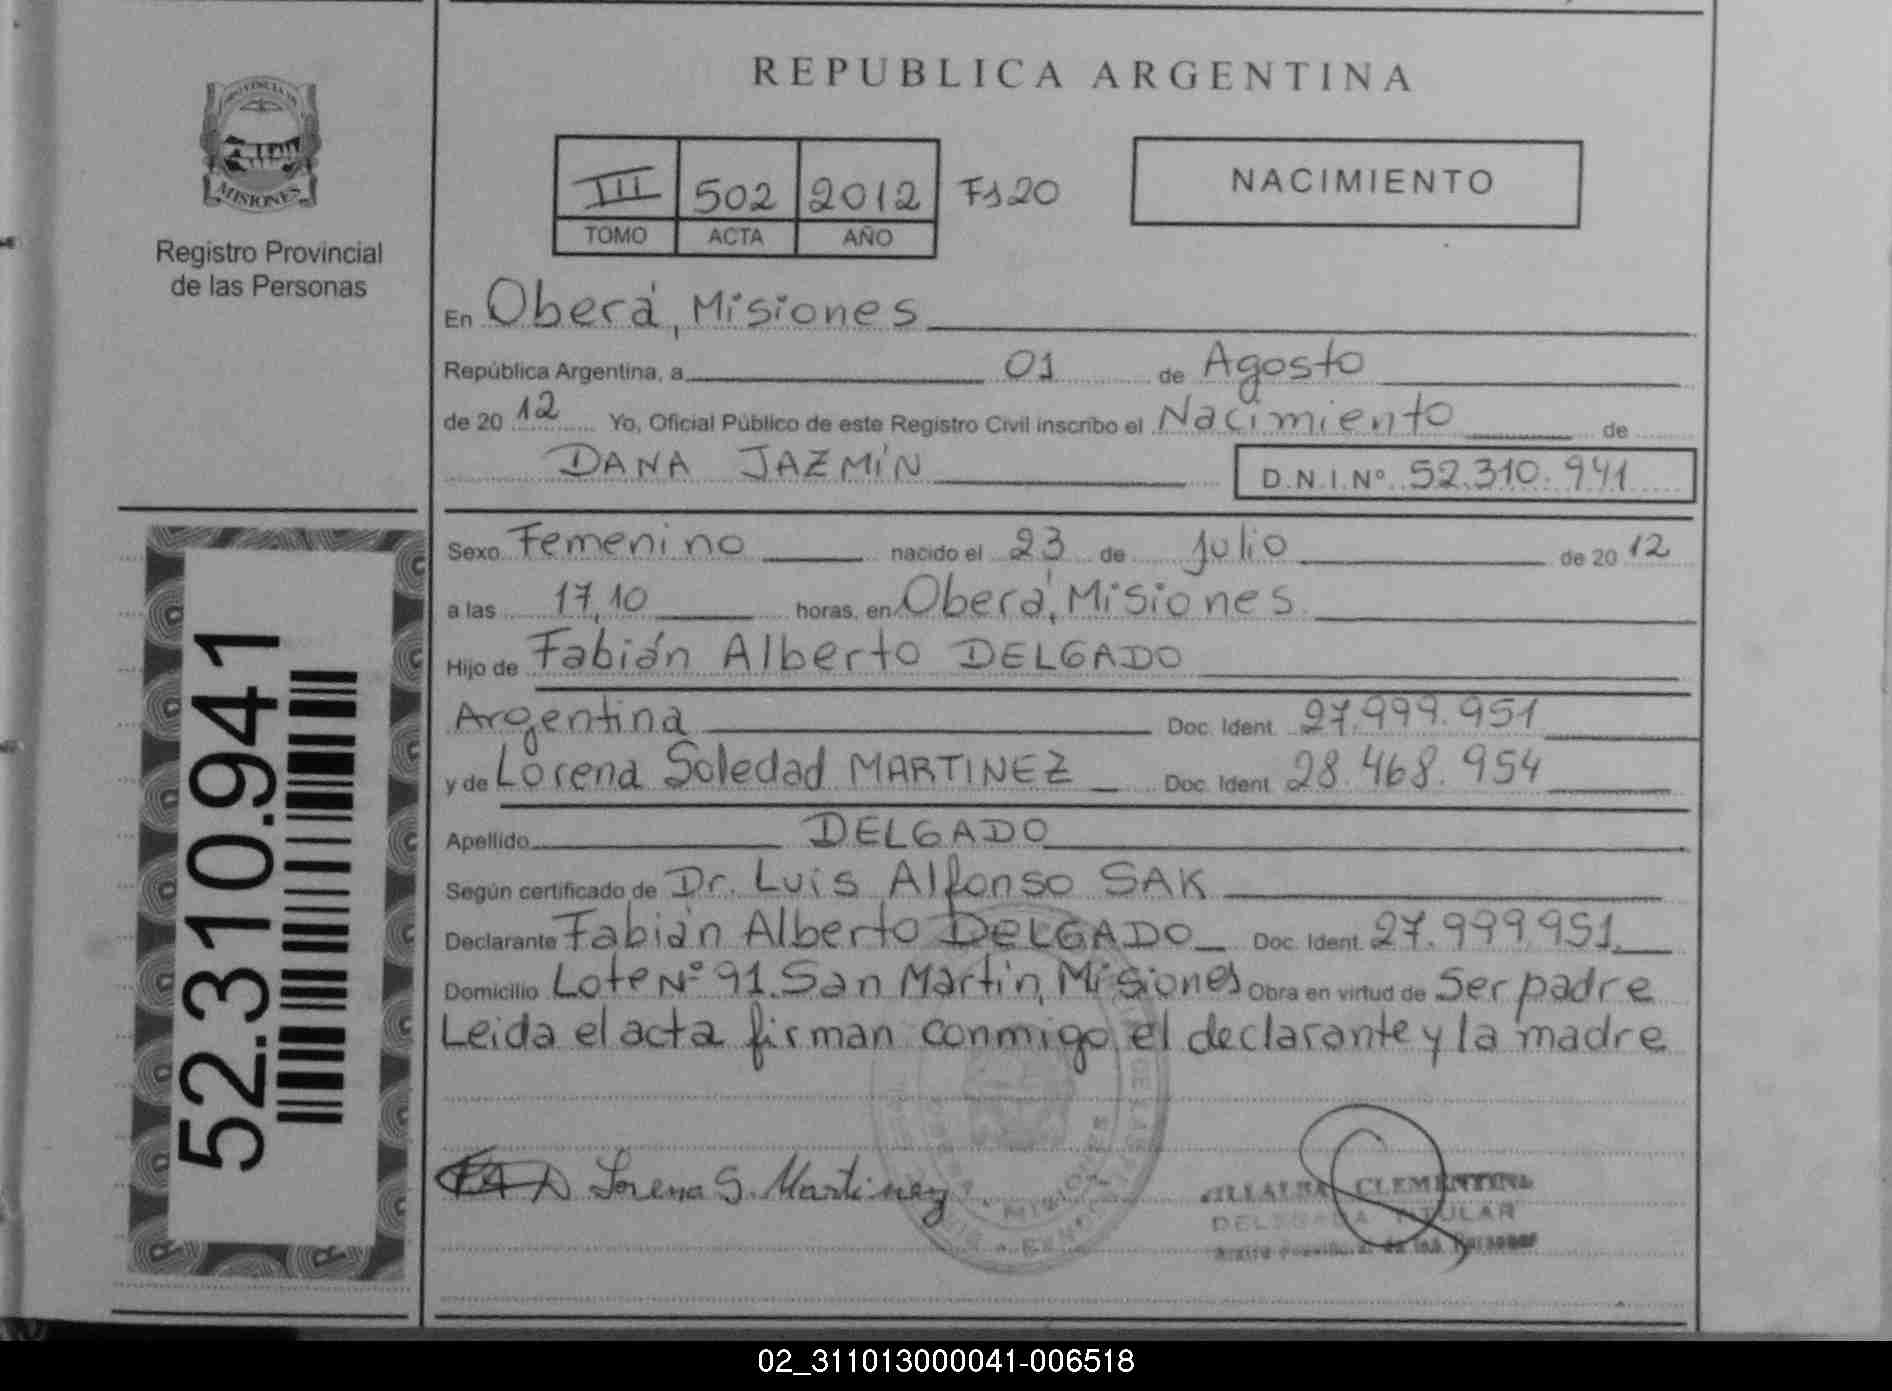 REPUBLICA ARGENTINA
PROVINCIA DE
MISIONES
Registro Provincial
de las Personas
III 502 2012 Fs 20
TOMO ACTA AÑO
NACIMIENTO
En Oberá, Misiones
República Argentina, a 01 de Agosto
de 20 12 Yo, Oficial Público de este Registro Civil inscribo el Nacimiento de
DANA JAZMÍN D.N.I.Nº 52.310.941
Sexo Femenino nacido el 23 de Julio de 20 12
a las 17,10 horas, en Oberá, Misiones
Hijo de Fabián Alberto DELGADO
Argentina Doc. Ident. 27.999.951
y de Lorena Soledad MARTINEZ Doc. Ident. 28.468.954
Apellido DELGADO
Según certificado de Dr. Luis Alfonso SAK
Declarante Fabián Alberto DELGADO Doc. Ident. 27.999.951
Domicilio Lote Nº 91. San Martín, Misiones Obra en virtud de Ser padre
Leida el acta firman conmigo el declarante y la madre
Lorena S. Martinez
VILLALBA CLEMENTINA
DELEGADA TITULAR
de las Personas
52.310.941
02_311013000041-006518